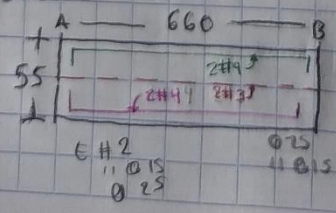 A 660 B
55
2#4
2#4 2#3
E #2
" @ 15
@ 25
@ 25
" @ 15